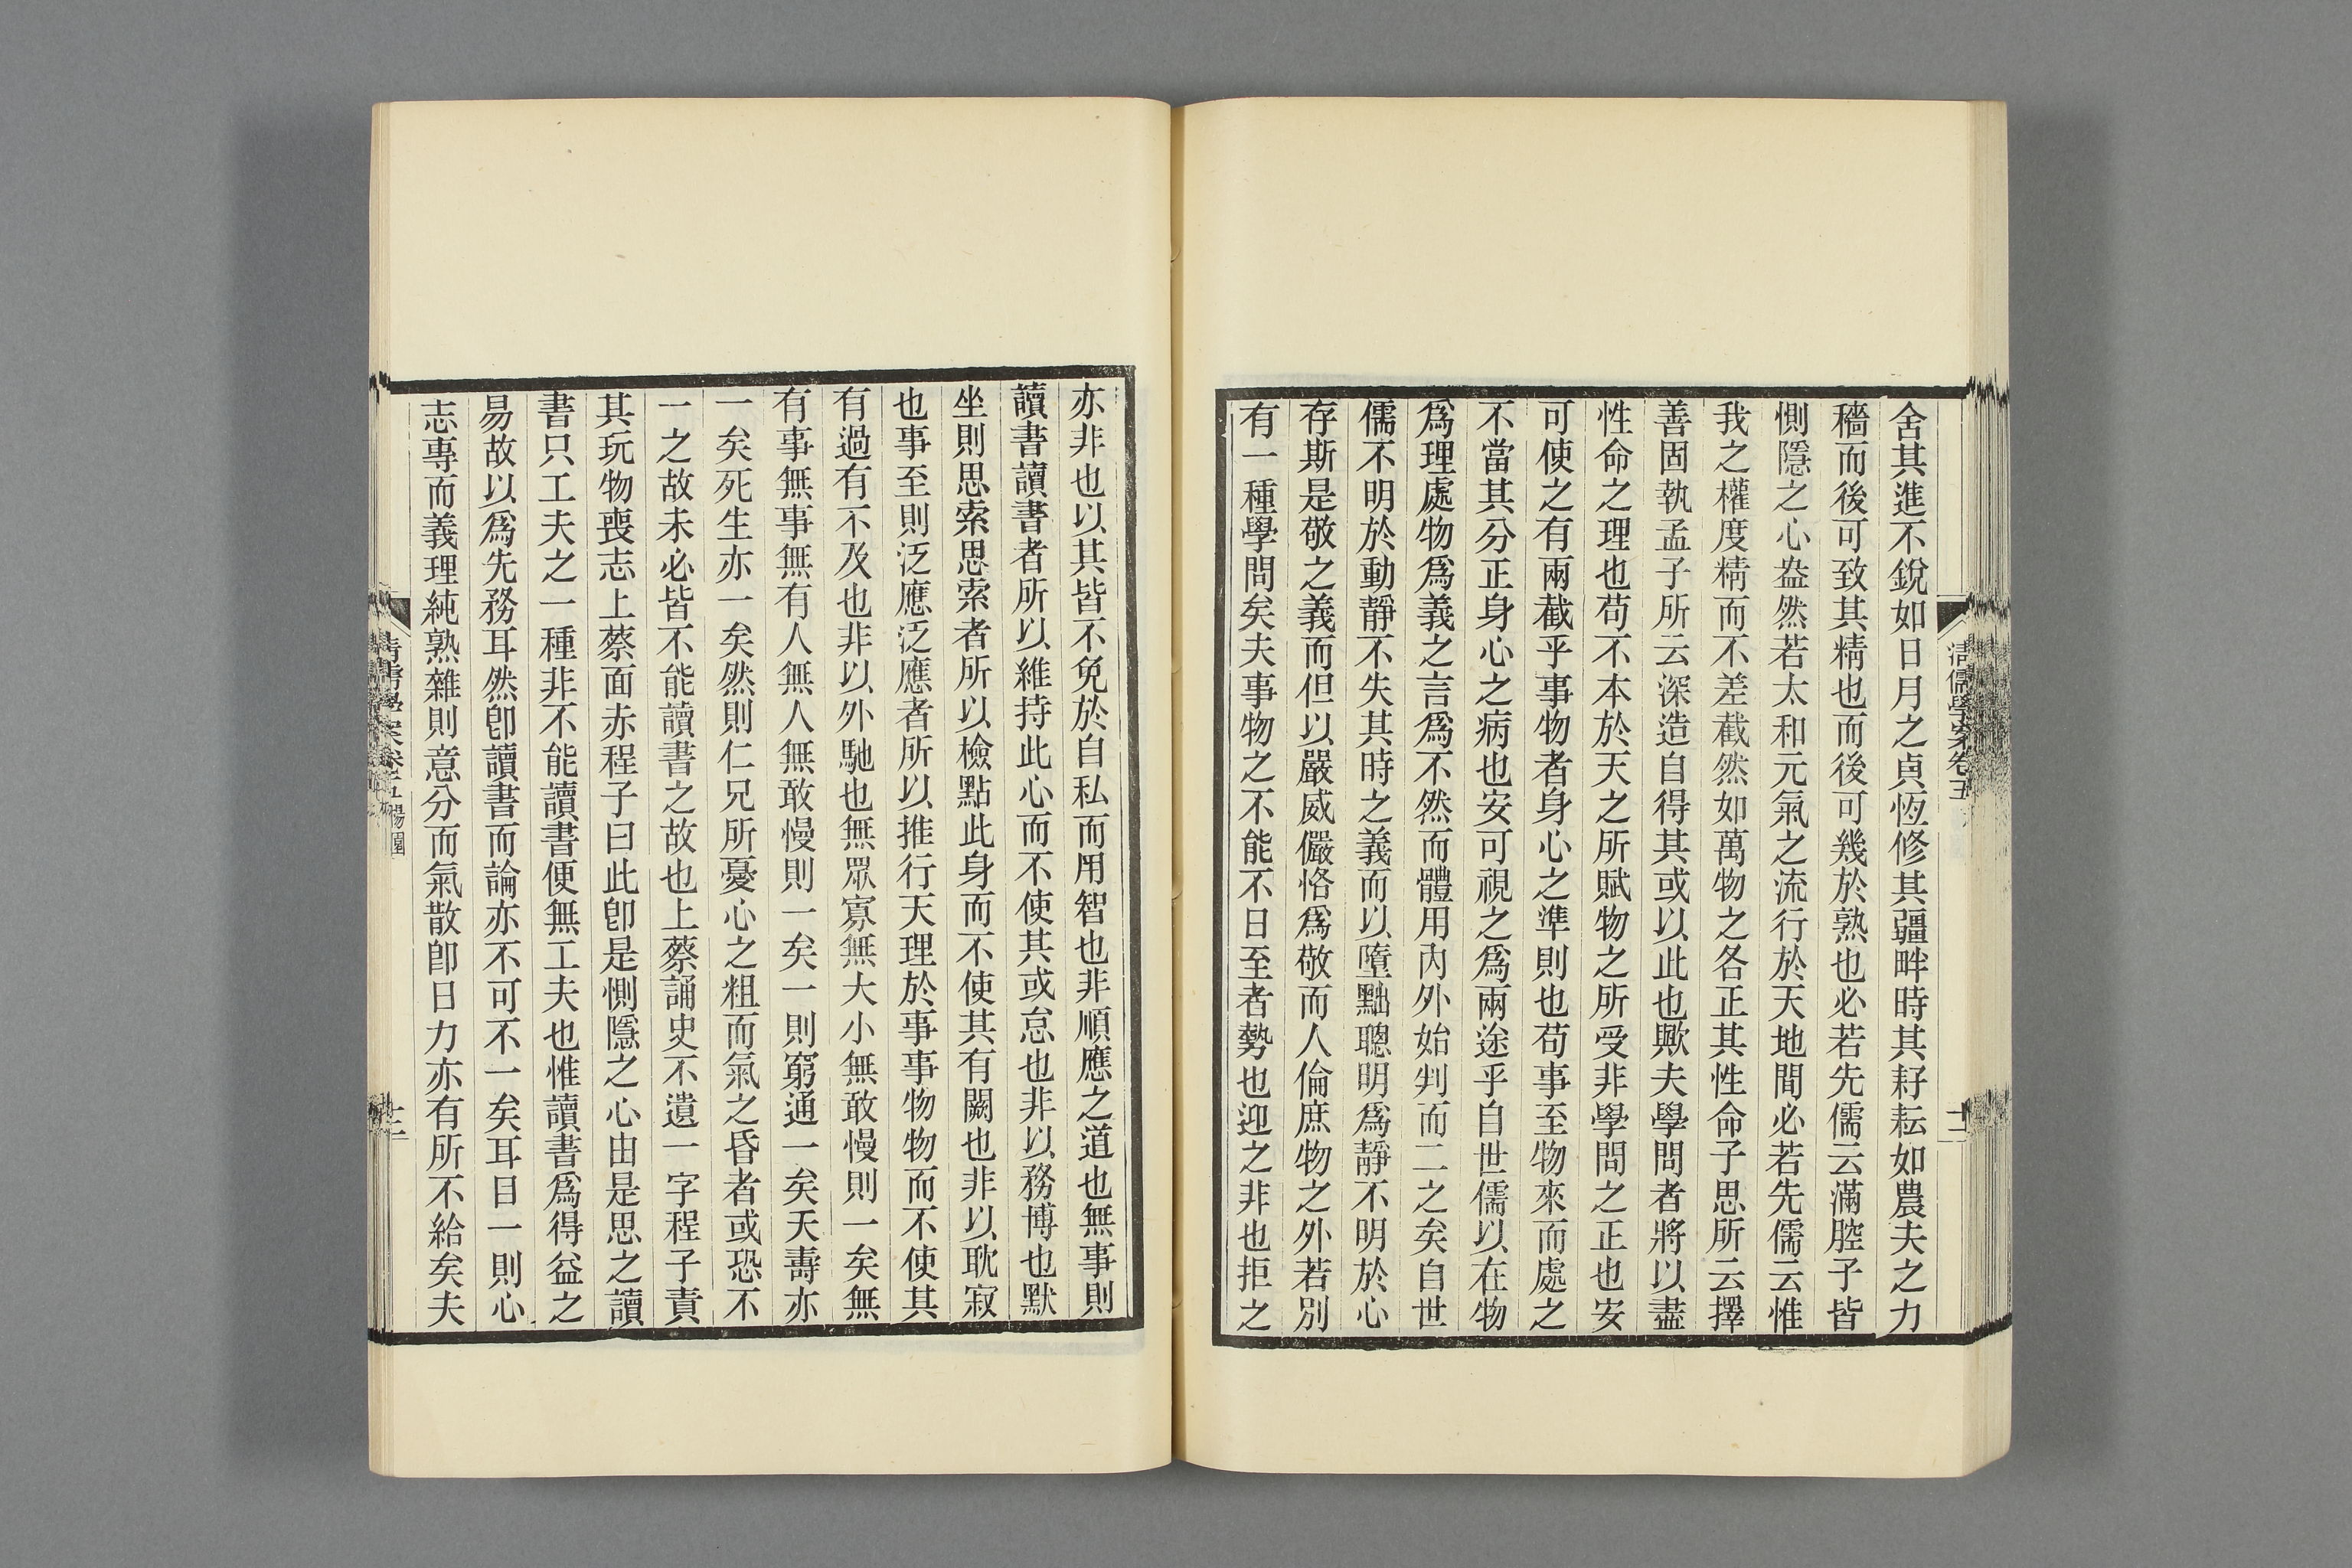 清儒學案卷五
十二
舍其進不銳如日月之貞恆修其疆畔時其耔耘如農夫之力
穡而後可致其精也而後可幾於熟也必若先儒云滿腔子皆
惻隱之心盎然若太和元氣之流行於天地間必若先儒云惟
我之權度精而不差截然如萬物之各正其性命子思所云擇
善固執孟子所云深造自得其或以此也歟夫學問者將以盡
性命之理也苟不本於天之所賦物之所受非學問之正也安
可使之有兩截乎事物者身心之準則也苟事至物來而處之
不當其分正身心之病也安可視之爲兩途乎自世儒以在物
爲理處物爲義之言爲不然而體用內外始判而二之矣自世
儒不明於動靜不失其時之義而以墮黜聰明爲靜不明於心
存斯是敬之義而但以嚴威儼恪爲敬而人倫庶物之外若別
有一種學問矣夫事物之不能不日至者勢也迎之非也拒之
亦非也以其皆不免於自私而用智也非順應之道也無事則
讀書讀書者所以維持此心而不使其或怠也非以務博也默
坐則思索思索者所以檢點此身而不使其有闕也非以耽寂
也事至則泛應泛應者所以推行天理於事事物物而不使其
有過有不及也非以外馳也無眾寡無大小無敢慢則一矣無
有事無事無有人無人無敢慢則一矣一則窮通一矣夭壽亦
一矣死生亦一矣然則仁兄所憂心之粗而氣之昏者或恐不
一之故未必皆不能讀書之故也上蔡誦史不遺一字程子責
其玩物喪志上蔡面赤程子曰此卽是惻隱之心由是思之讀
書只工夫之一種非不能讀書便無工夫也惟讀書爲得益之
易故以爲先務耳然卽讀書而論亦不可不一矣耳目一則心
志專而義理純熟雜則意分而氣散卽日力亦有所不給矣夫
清儒學案卷五 楊園